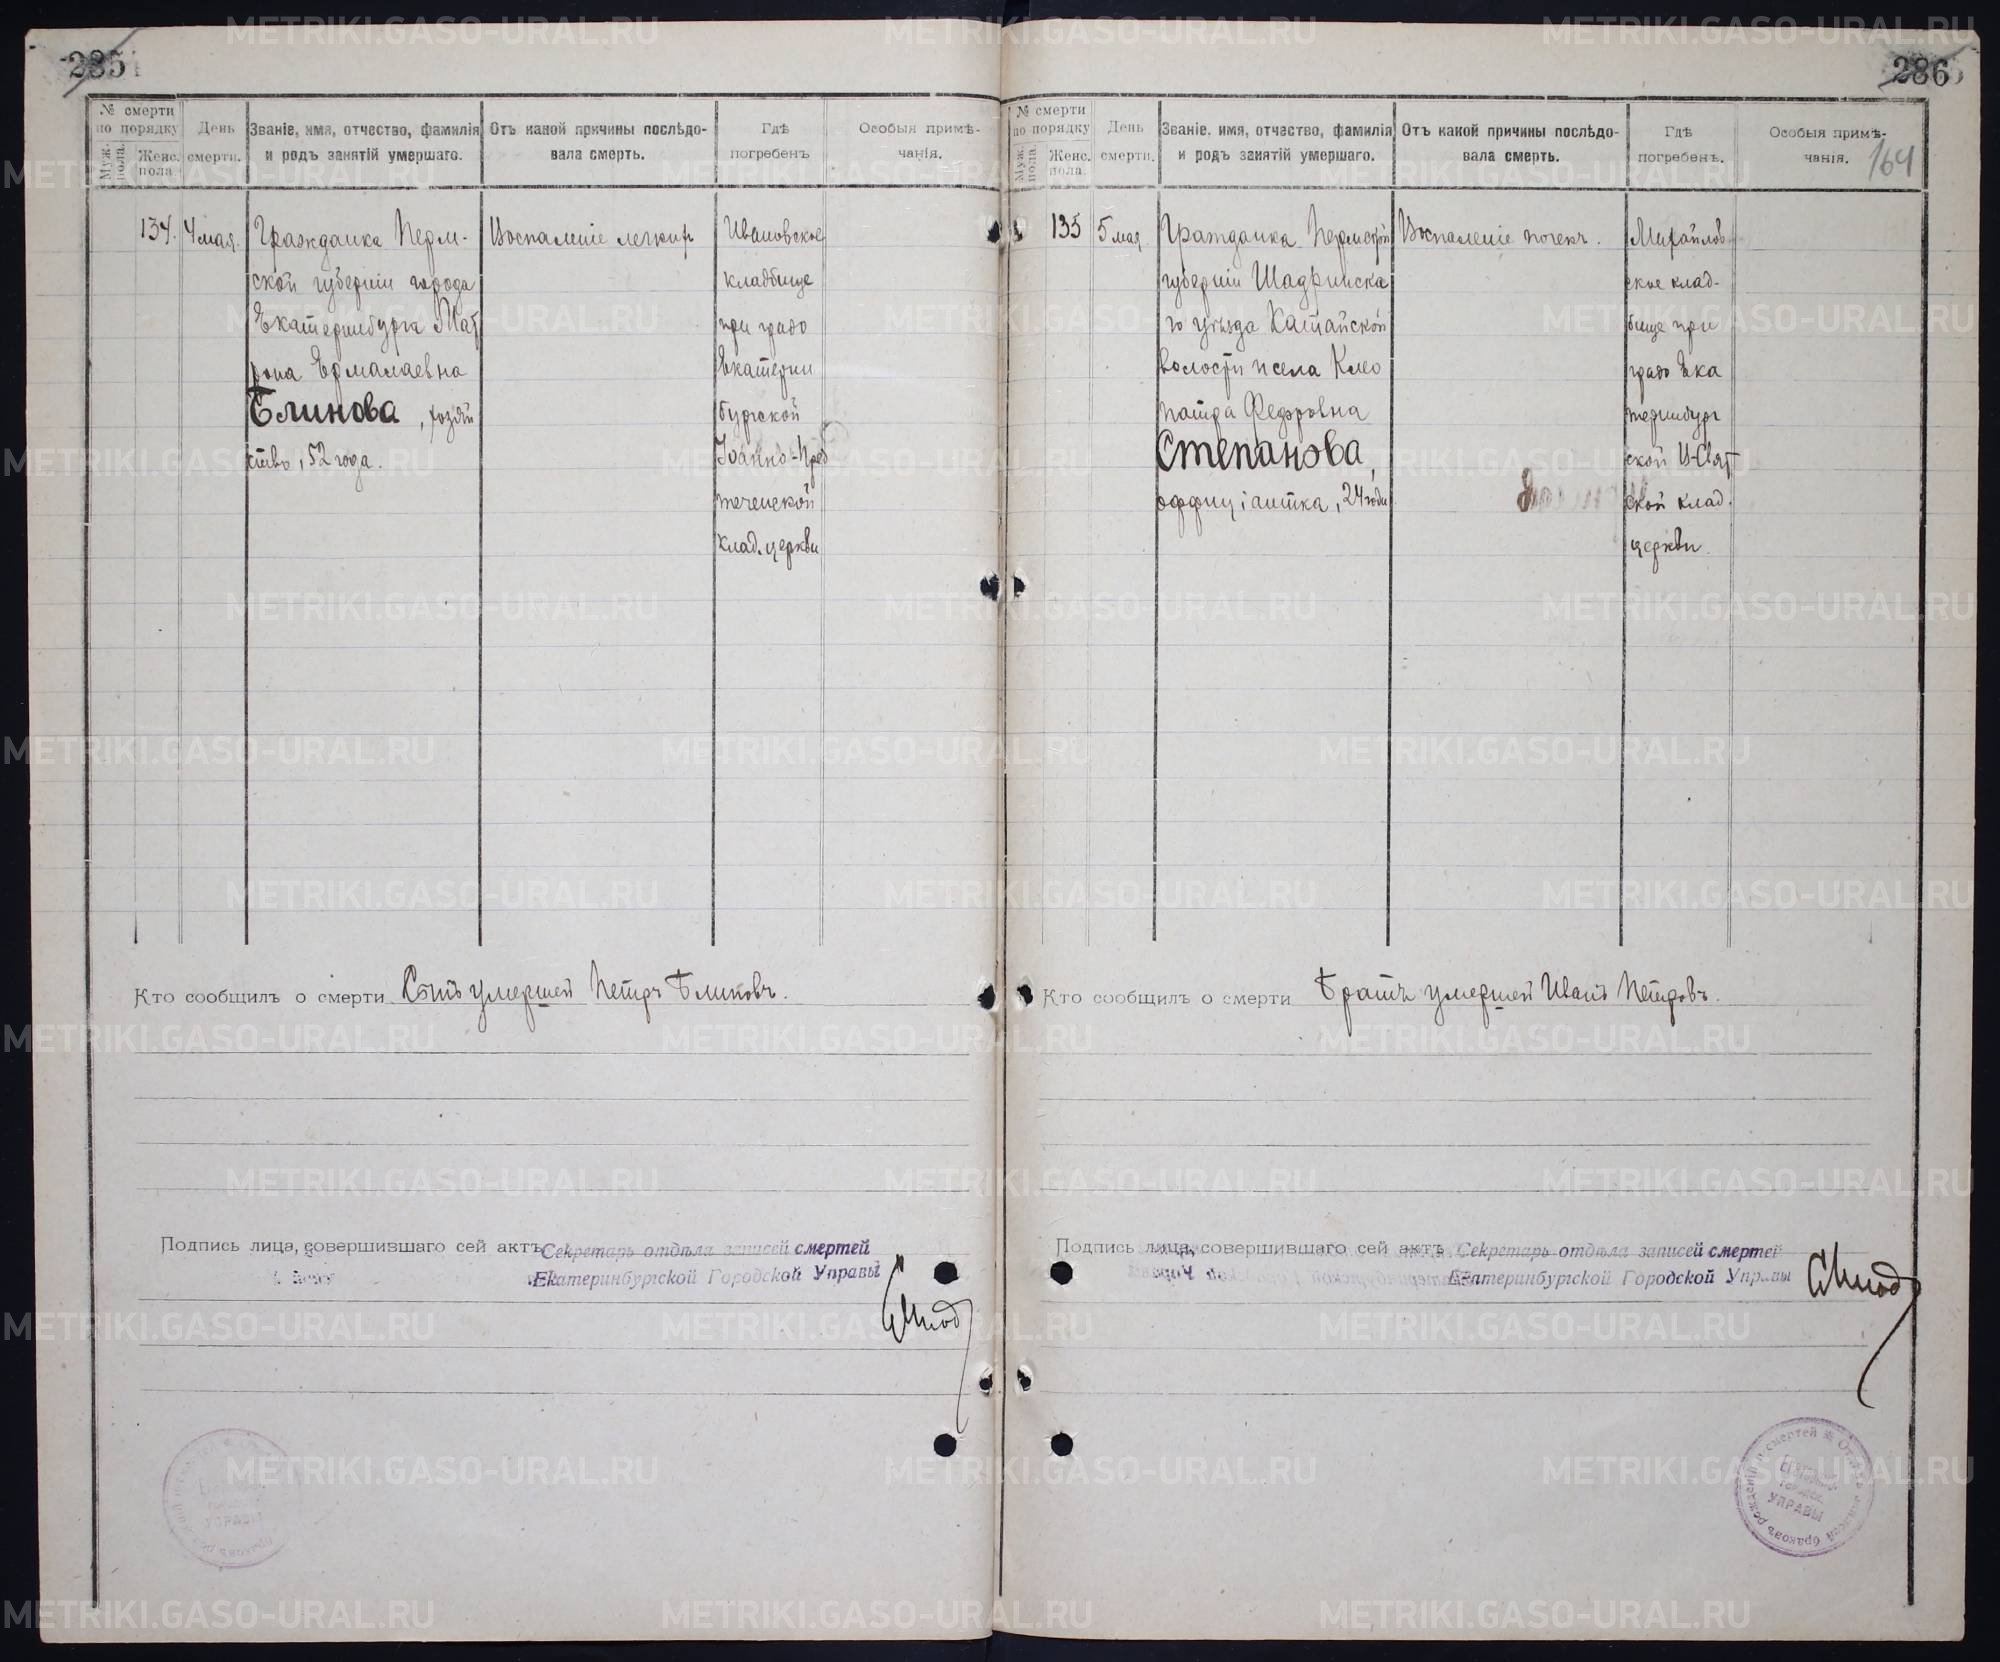 285
№ смерти
по порядку
Муж. пола.
Женс. пола.
День
смерти.
Званіе, имя, отчество, фамилія
и родъ занятій умершаго.
Отъ какой причины послѣдо-
вала смерть.
Гдѣ
погребенъ
Особыя примѣ-
чанія.
134.
4 мая.
Гражданка Перм-
ской губерніи города
Екатеринбурга Мат
рона Ермалаевна
Блинова, хозяй
ство, 52 года.
Воспаленіе легкихъ
Ивановское
кладбище
при градо
Екатерин
бургской
Іоанно-Пред
теченской
клад. церкви
Кто сообщилъ о смерти Сынъ умершей Петръ Блиновъ.
Подпись лица, совершившаго сей актъ
Секретарь отдѣла записей смертей
Екатеринбургской Городской Управы
286
164
№ смерти
по порядку
Муж. пола.
Женс. пола.
День
смерти.
Званіе, имя, отчество, фамилія
и родъ занятій умершаго.
Отъ какой причины послѣдо-
вала смерть.
Гдѣ
погребенъ.
Особыя примѣ-
чанія.
135
5 мая.
Гражданка Пермской
губерніи Шадринска
го уѣзда Катайской
волости и села Клео
патра Федоровна
Степанова,
оффиціантка, 24 года
Воспаленіе почекъ.
Михайлов
ское клад-
бище при
градо Ека
теринбург
ской
ской клад.
церкви.
Кто сообщилъ о смерти Братъ умершей Иванъ Петровъ.
Подпись лица, совершившаго сей актъ
Секретарь отдѣла записей смертей
Екатеринбургской Городской Управы
УПРАВЫ
METRIKI.GASO-URAL.RU